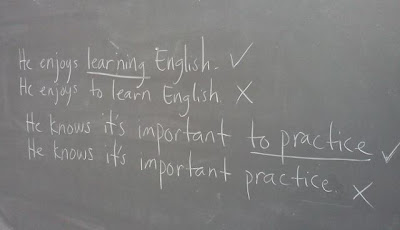 He enjoys learning English. ✓
He enjoys to learn English. X
He knows it's important to practice ✓
He knows it's important practice. X